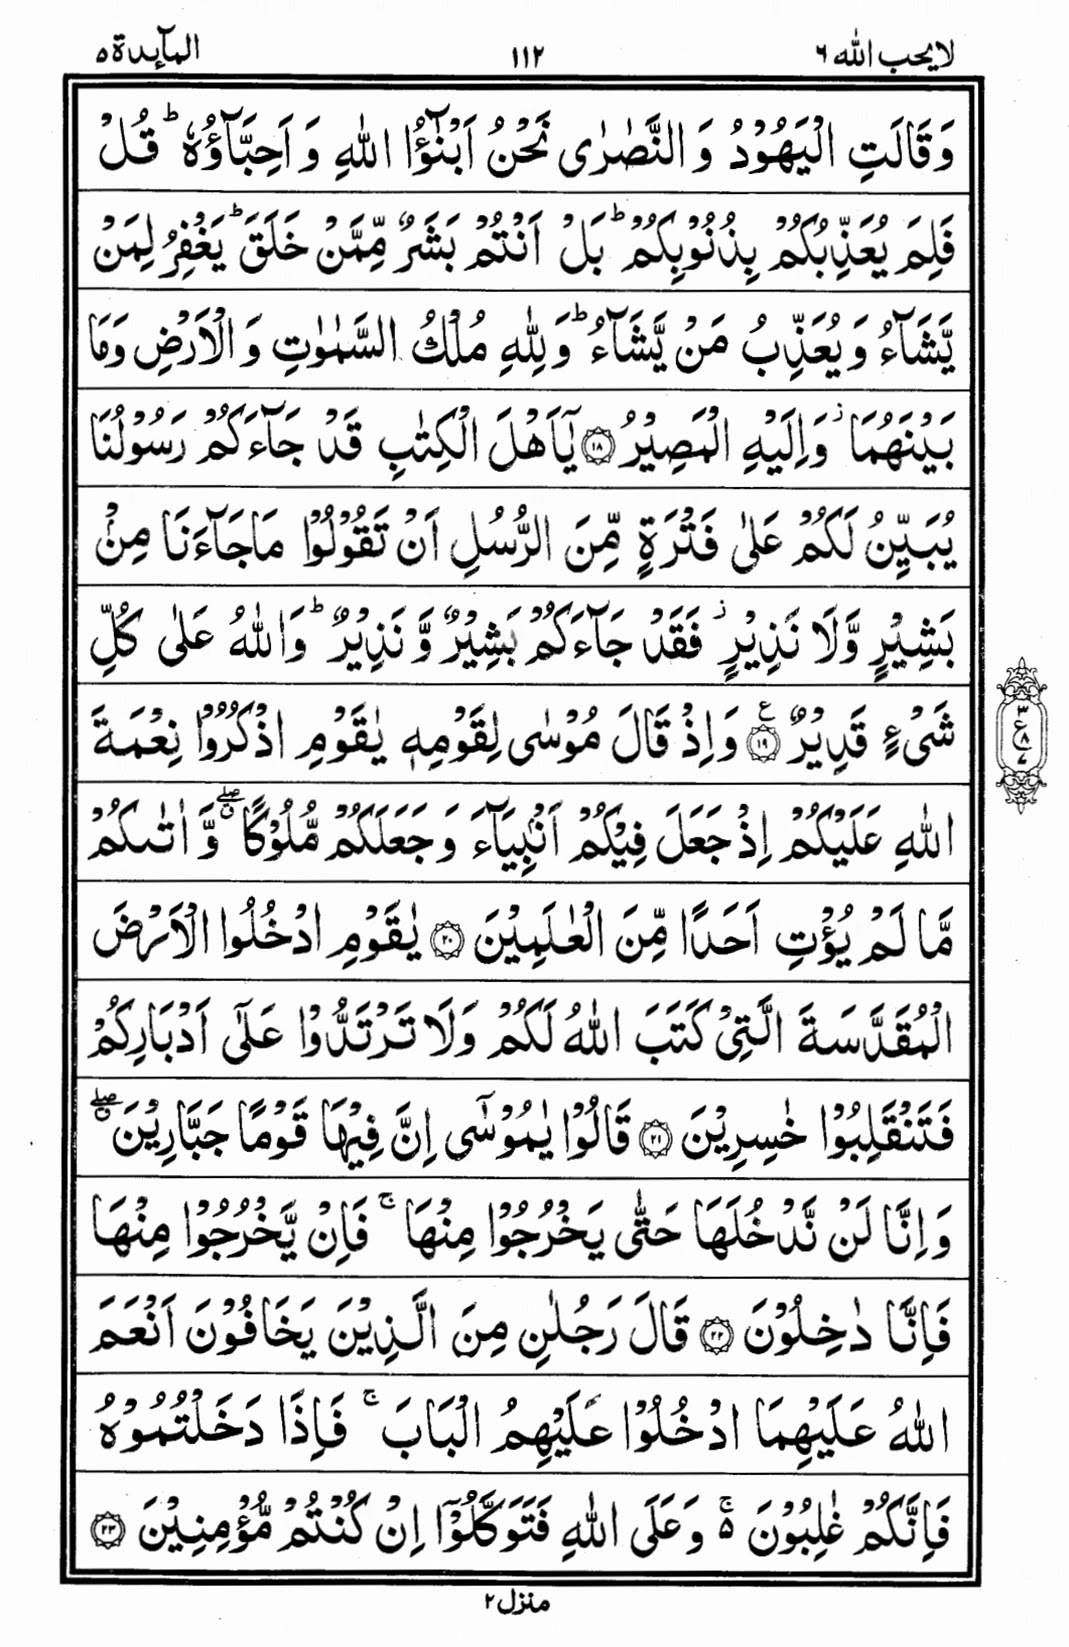 لا یحب الله ٦
١١٢
المآىِٕدة ٥
وَقَالَتِ الْیَهُوْدُ وَ النَّصٰرٰى نَحْنُ اَبْنٰٓؤُا اللّٰهِ وَ اَحِبَّآؤُهٗؕ قُلْ
فَلِمَ یُعَذِّبُكُمْ بِذُنُوْبِكُمْؕ بَلْ اَنْتُمْ بَشَرٌ مِّمَّنْ خَلَقَؕ یَغْفِرُ لِمَنْ
یَّشَآءُ وَیُعَذِّبُ مَنْ یَّشَآءُؕ وَلِلّٰهِ مُلْكُ السَّمٰوٰتِ وَ الْاَرْضِ وَمَا
بَیْنَهُمَا٘ وَاِلَیْهِ الْمَصِیْرُ ۝١٨ یٰۤاَهْلَ الْكِتٰبِ قَدْ جَآءَكُمْ رَسُوْلُنَا
یُبَیِّنُ لَكُمْ عَلٰى فَتْرَةٍ مِّنَ الرُّسُلِ اَنْ تَقُوْلُوْا مَاجَآءَنَا مِنْۢ
بَشِیْرٍ وَّلَا نَذِیْرٍ٘ فَقَدْ جَآءَكُمْ بَشِیْرٌ وَّ نَذِیْرٌؕ وَاللّٰهُ عَلٰى كُلِّ
شَیْءٍ قَدِیْرٌ ۝١٩ ع وَاِذْ قَالَ مُوْسٰى لِقَوْمِهٖ یٰقَوْمِ اذْكُرُوْا نِعْمَةَ
٣ ع ٨ ٧
اللّٰهِ عَلَیْكُمْ اِذْ جَعَلَ فِیْكُمْ اَنْۢبِیَآءَ وَجَعَلَكُمْ مُّلُوْكًاۗۖ وَّ اٰتٰىكُمْ
مَّا لَمْ یُؤْتِ اَحَدًا مِّنَ الْعٰلَمِیْنَ ۝٢٠ یٰقَوْمِ ادْخُلُوا الْاَرْضَ
الْمُقَدَّسَةَ الَّتِیْ كَتَبَ اللّٰهُ لَكُمْ وَلَا تَرْتَدُّوْا عَلٰۤى اَدْبَارِكُمْ
فَتَنْقَلِبُوْا خٰسِرِیْنَ ۝٢١ قَالُوْا یٰمُوْسٰۤى اِنَّ فِیْهَا قَوْمًا جَبَّارِیْنَۗۖ
وَاِنَّا لَنْ نَّدْخُلَهَا حَتّٰى یَخْرُجُوْا مِنْهَاۚ فَاِنْ یَّخْرُجُوْا مِنْهَا
فَاِنَّا دٰخِلُوْنَ ۝٢٢ قَالَ رَجُلٰنِ مِنَ الَّذِیْنَ یَخَافُوْنَ اَنْعَمَ
اللّٰهُ عَلَیْهِمَا ادْخُلُوْا عَلَیْهِمُ الْبَابَۚ فَاِذَا دَخَلْتُمُوْهُ
فَاِنَّكُمْ غٰلِبُوْنَ ۚ۬ وَعَلَى اللّٰهِ فَتَوَكَّلُوْۤا اِنْ كُنْتُمْ مُّؤْمِنِیْنَ ۝٢٣
منزل ٢